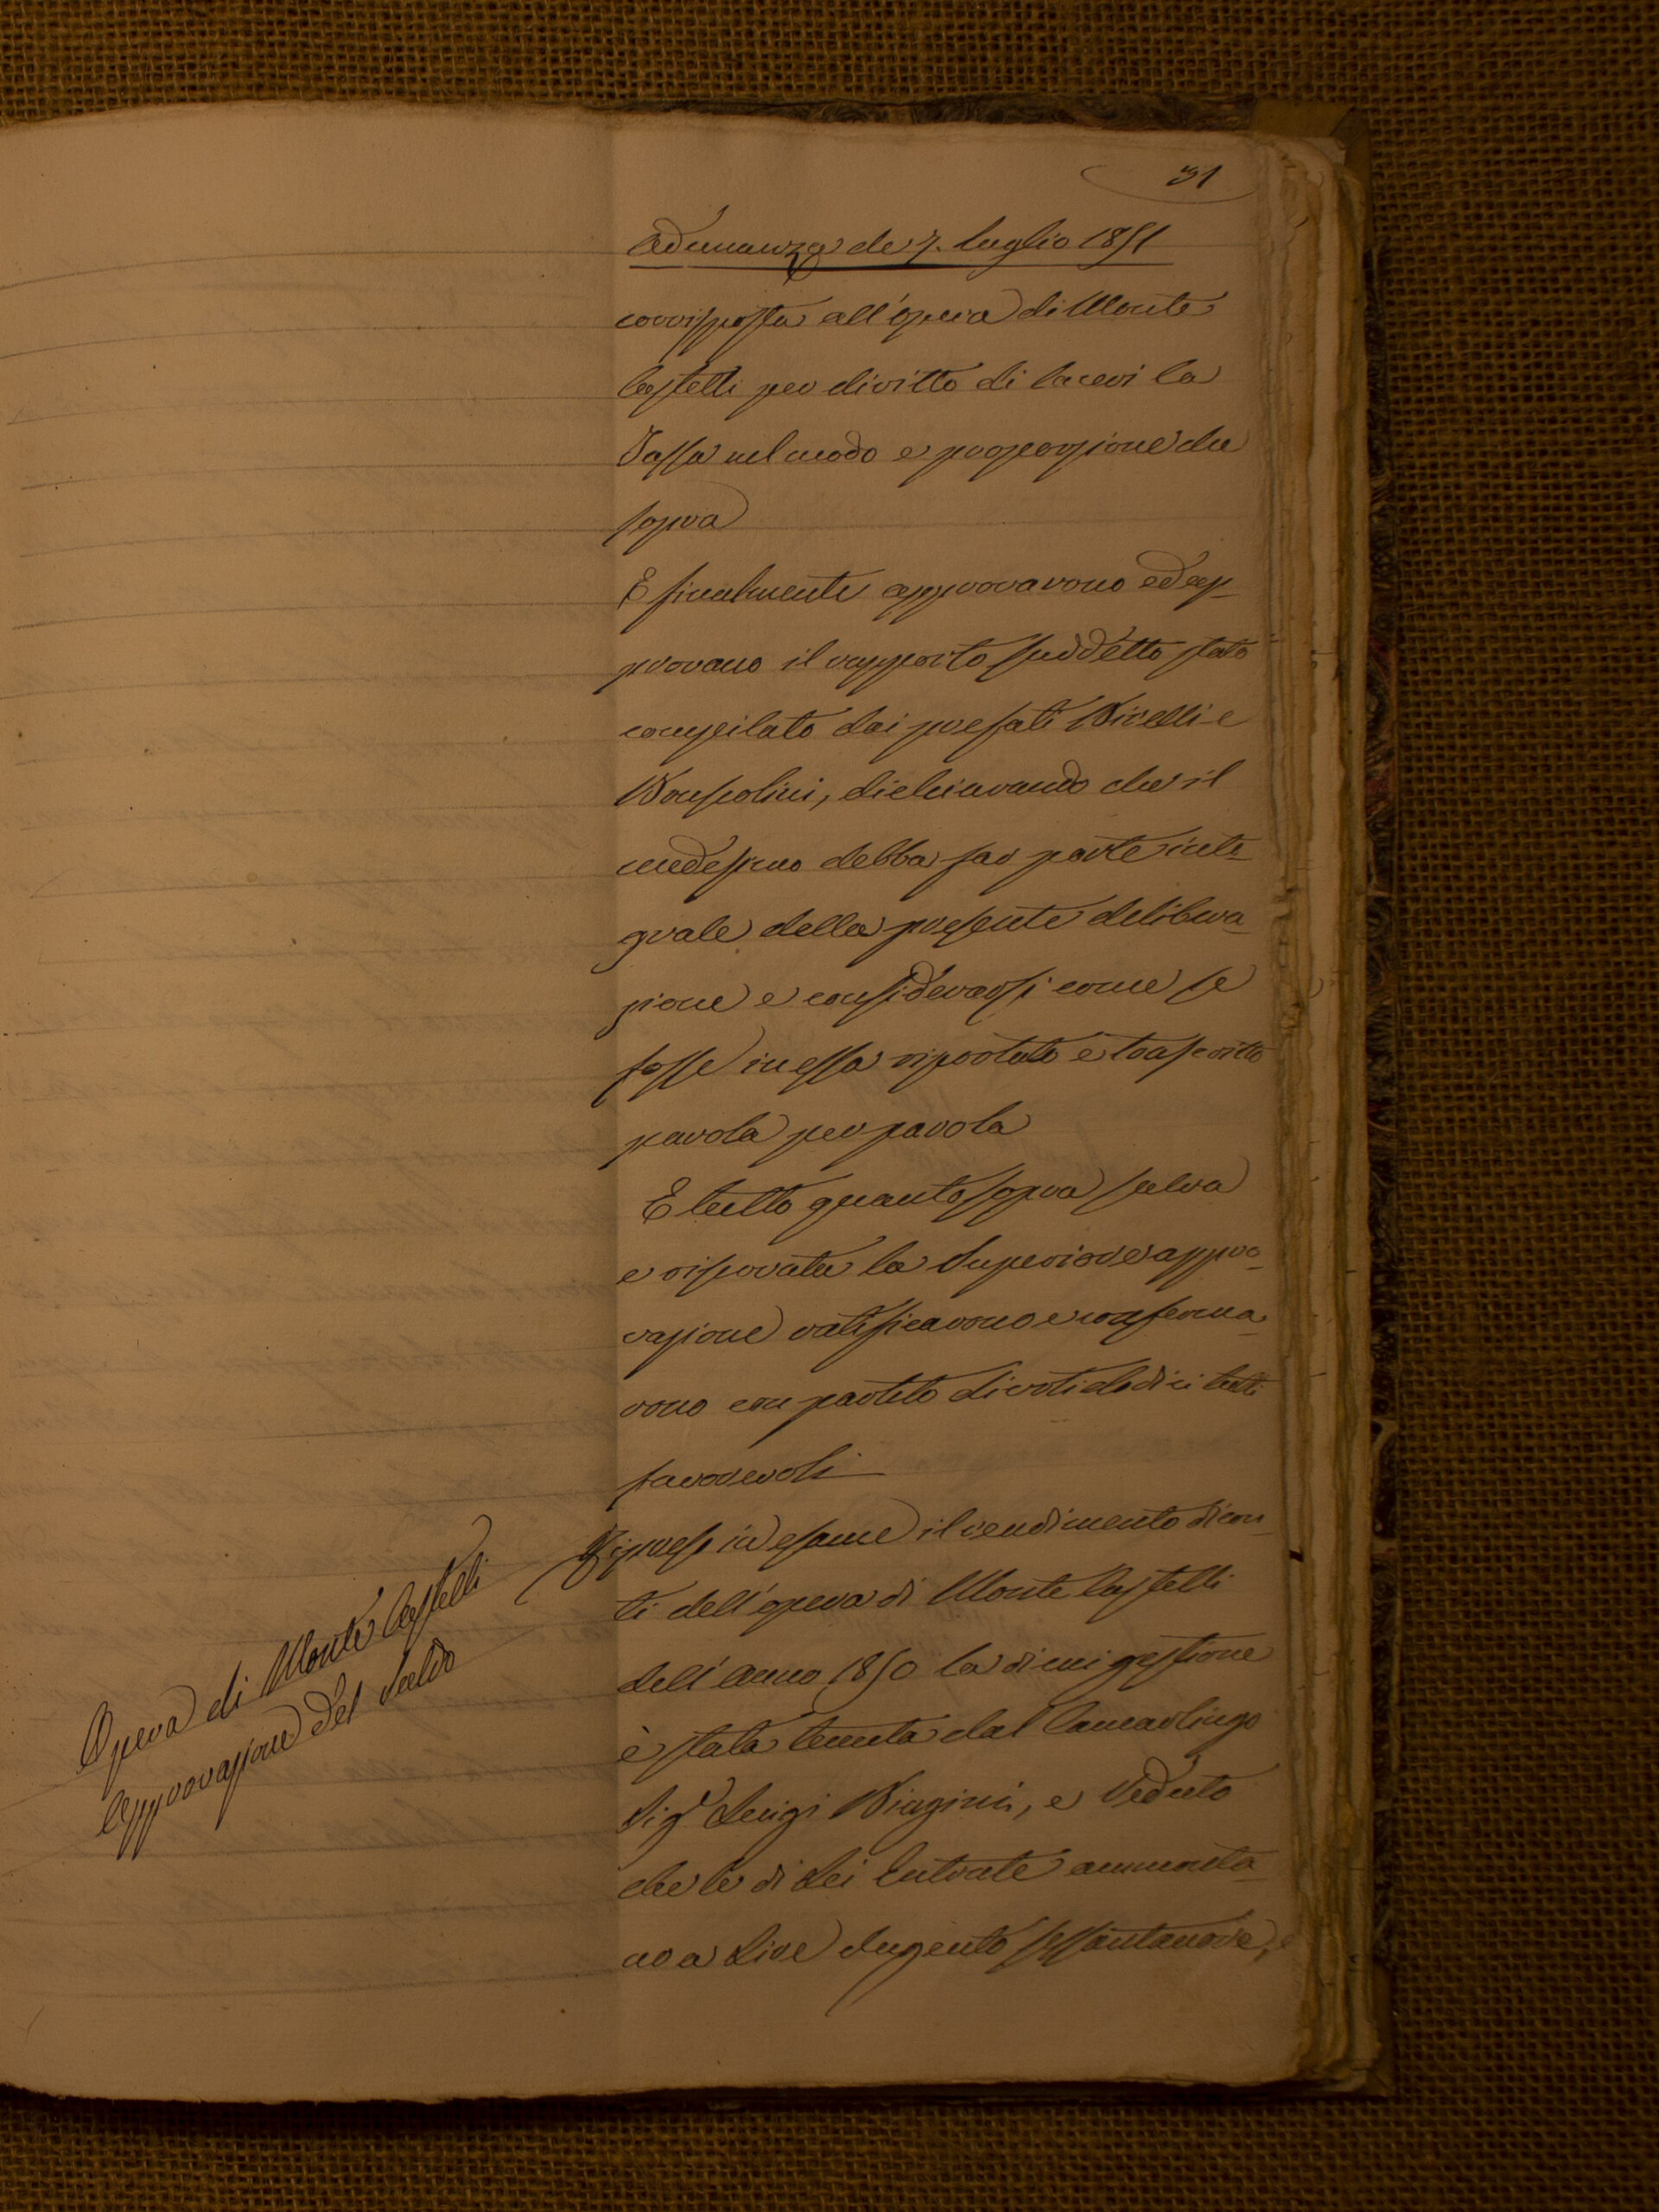 31
Adunanza de 7. Luglio 1851
corrisposta all'opera di Monte
Castelli per diritto di Laceri la
Tassa nel modo e proporzione che
sopra
E finalmente approvarono ed ap-
provano il rapporto suddetto stato
compilato dai prefati Birelli e
Bonsolini, dichiarando che il
medesimo debba far parte inte-
grale della presente delibera-
zione e considerarsi come se
fosse in essa riportato e trascritto
parola per parola
E tutto quanto sopra salva
e riservata la Superiore appro-
vazione ratificarono e conferma-
rono con partito di voti dodici tutti
favorevoli
Opera di Monte Castelli
Approvazione del Saldo
Ripreso in esame il rendimento di con-
ti dell'opera di Monte Castelli
dell'Anno 1850 la di cui gestione
è stata tenuta dal Camarlingo
Sig.r Luigi Biagini, e Veduto
che le di Lei Entrate ammonta-
no a Lire dugento sessantanove, e